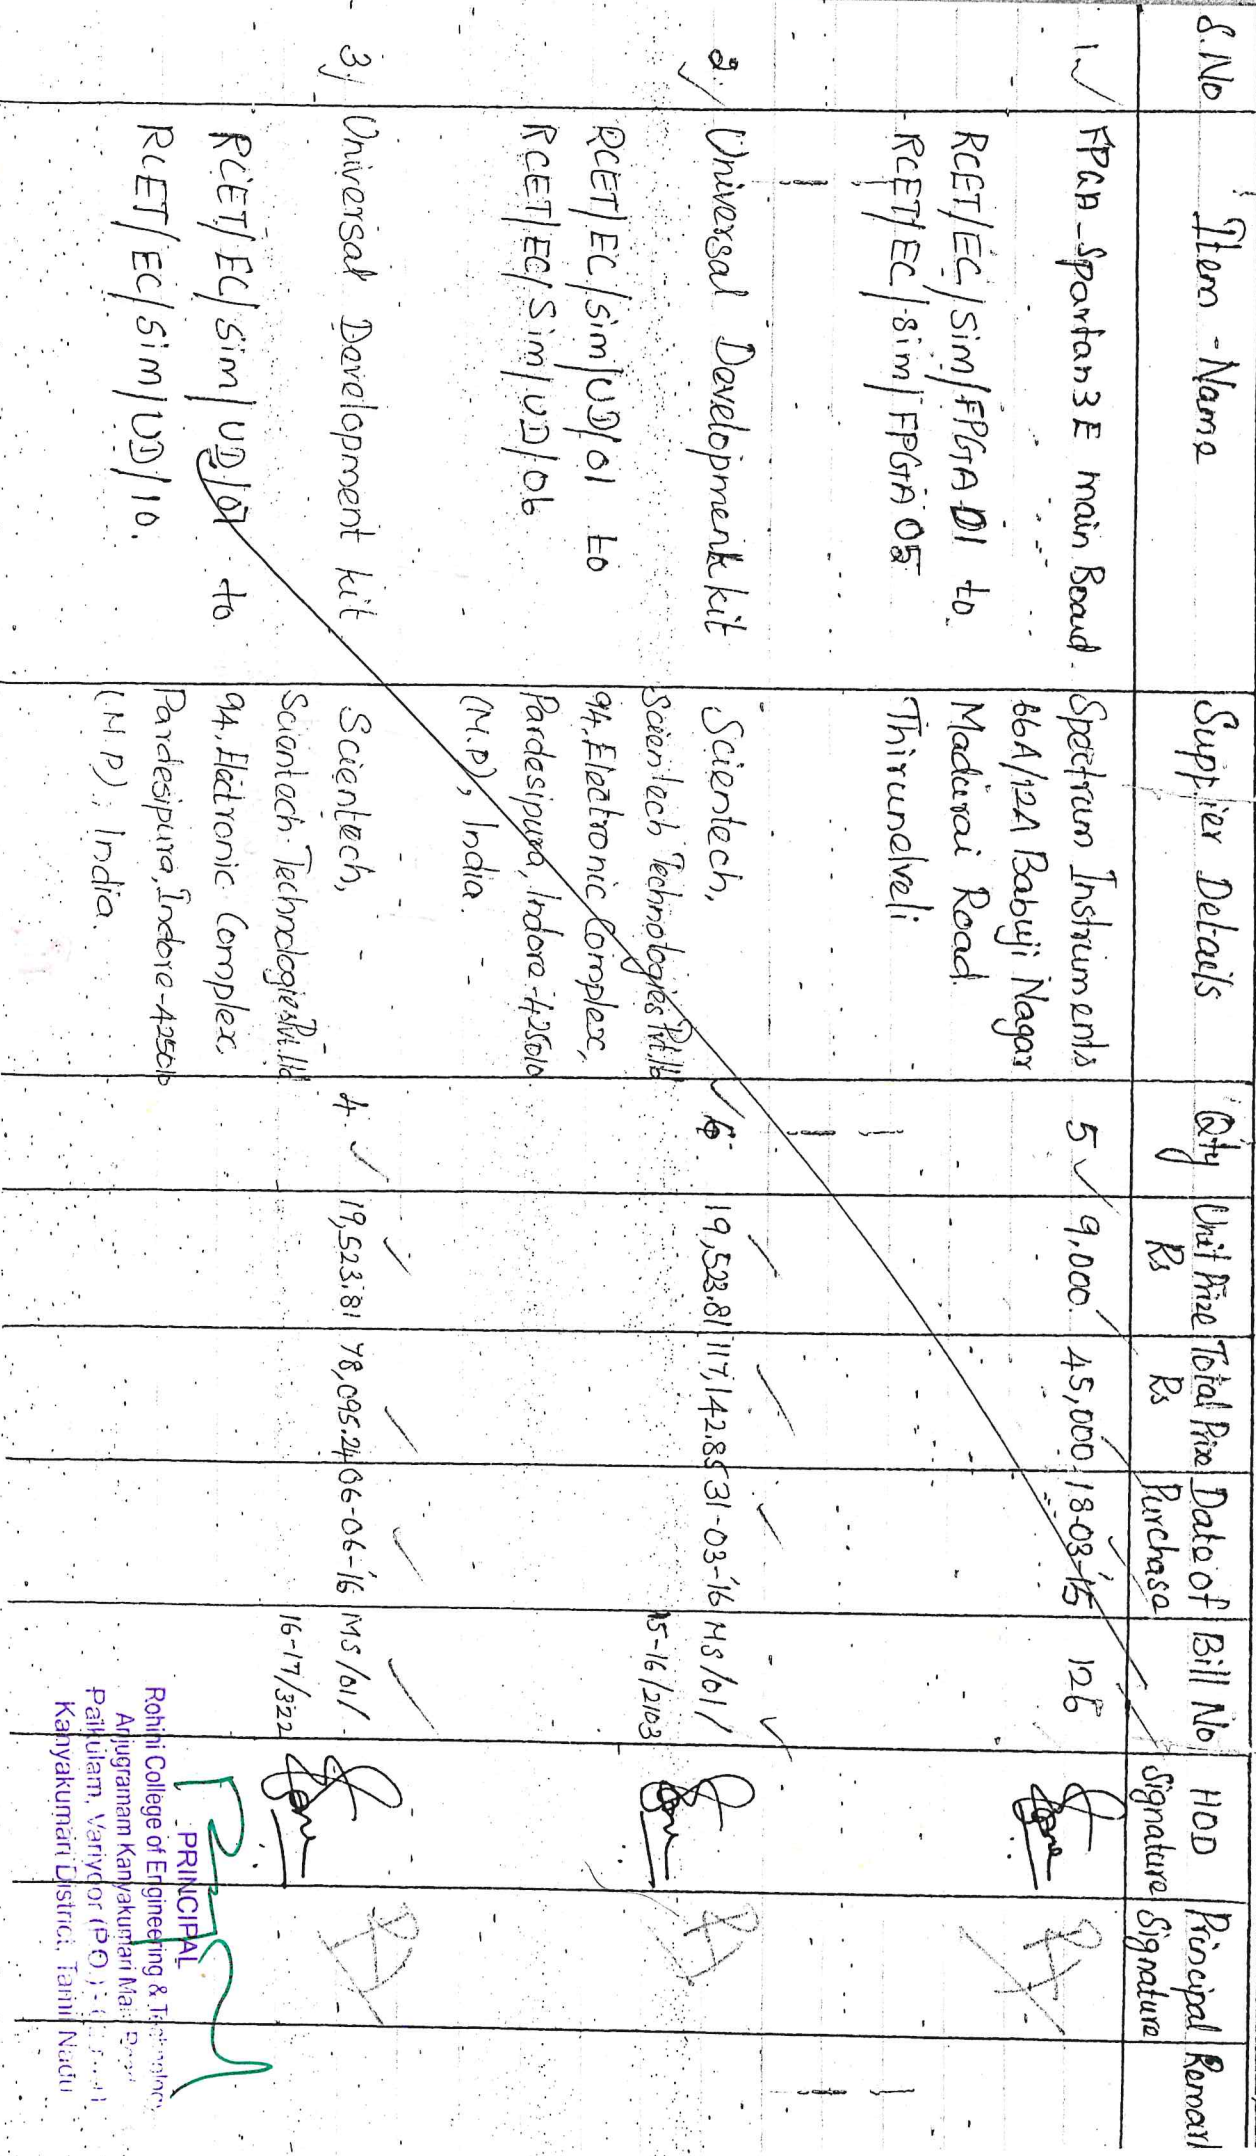 S.No
Item-Name
Supplier Details
Qty
Unit Prize Rs
Total Prize Rs
Date of Purchase
Bill No
HOD Signature
Principal Signature
Remark
1.
FPGA-Spartan3E main Board.
RCET/EC/Sim/FPGA 01 to
RCET/EC/Sim/FPGA 05
Spectrum Instruments
66A/12A Babuji Nagar
Madurai Road
Thirunelveli
5
9,000
45,000
18-03-'15
126
2.
Universal Development kit
RCET/EC/Sim/UD/01 to
RCET/EC/Sim/UD/06
Scientech,
Scientech Technologies Pvt.ltd
94, Electronic Complex,
Pardesipura, Indore-425010
(M.P), India.
6
19,523.81
117,142.85
31-03-'16
MS/01/
15-16/2103
3.
Universal Development kit
RCET/EC/Sim/UD/07 to
RCET/EC/Sim/UD/10.
Scientech,
Scientech Technologies Pvt.ltd
94, Electronic Complex,
Pardesipura, Indore-425010
(M.P), India.
4.
19,523.81
78,095.24
06-06-'16
MS/01/
16-17/322
PRINCIPAL
Rohini College of Engineering & Technology
Anjugramam Kanyakumari Main Road
Palkulam, Variyoor (P.O.)
Kanyakumari District, Tamil Nadu